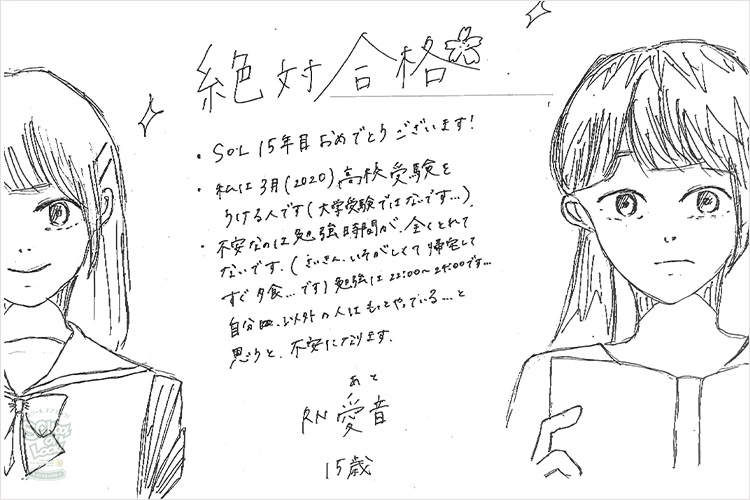 絶対合格
・SOL 15年目 おめでとうございます!
・私は3月(2020)高校受験を
うける人です(大学受験ではないです…)。
・不安なのは勉強時間が、全くとれて
ないです。(さいきん、いそがしくて帰宅して
すぐ夕食…です)勉強は22:00〜24:00です…
自分以外の人はもっとやっている…と
思うと、不安になります。
あと
RN 愛音
15歳